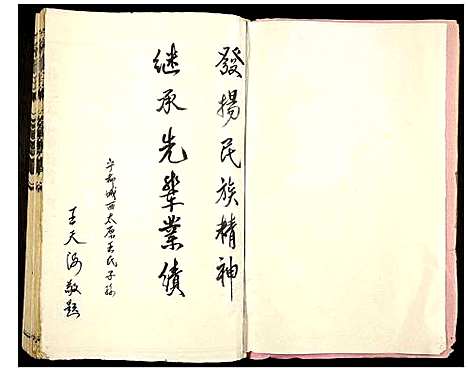 發揚民族精神
继承先辈業績
宁都城西太原王氏子孫
王天海敬題